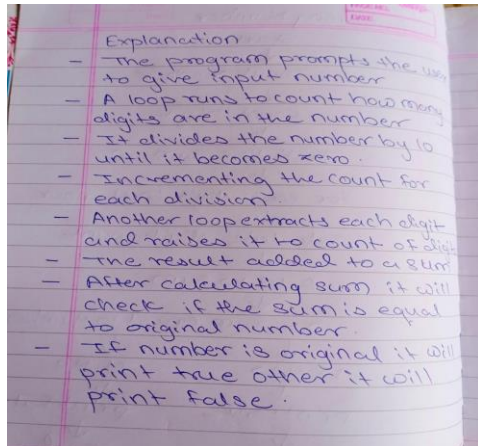 Explanation
- The program prompts the user
to give input number
- A loop runs to count how many
digits are in the number
- It divides the number by 10
until it becomes zero.
- Incrementing the count for
each division.
- Another loop extracts each digit
and raises it to count of digit
- The result added to a sum
- After calculating sum it will
check if the sum is equal
to original number.
- If number is original it will
print true other it will
print false.